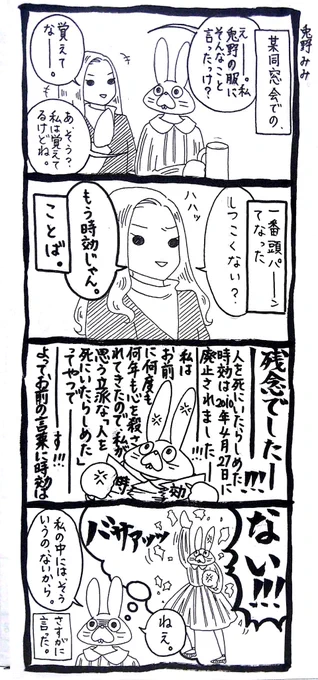 兎野みみ
某同窓会での、
えー。私
兎野の服に
そんなこと
言ったっけ？
覚えて
なーー。
あ、そう？
私は覚えて
るけどね。
一番頭パーン
てなった
ことば。
ハハッ
しつこくない？
もう時効じゃん。
残念でしたー!!!!
人を死にいたらしめた
時効は2010年4月27日に
廃止されました!!!
私は
お前
に何度も
何年も心を殺さ
れてきたので私が
思う立派な「人を
死にいたらしめた」
ってやつでーーす!!!!
よってお前の言葉に時効は
時
効
ない!!!
バサアッッ
ねえ。
私の中には、そう
いうの、ないから。
さすがに
言った。